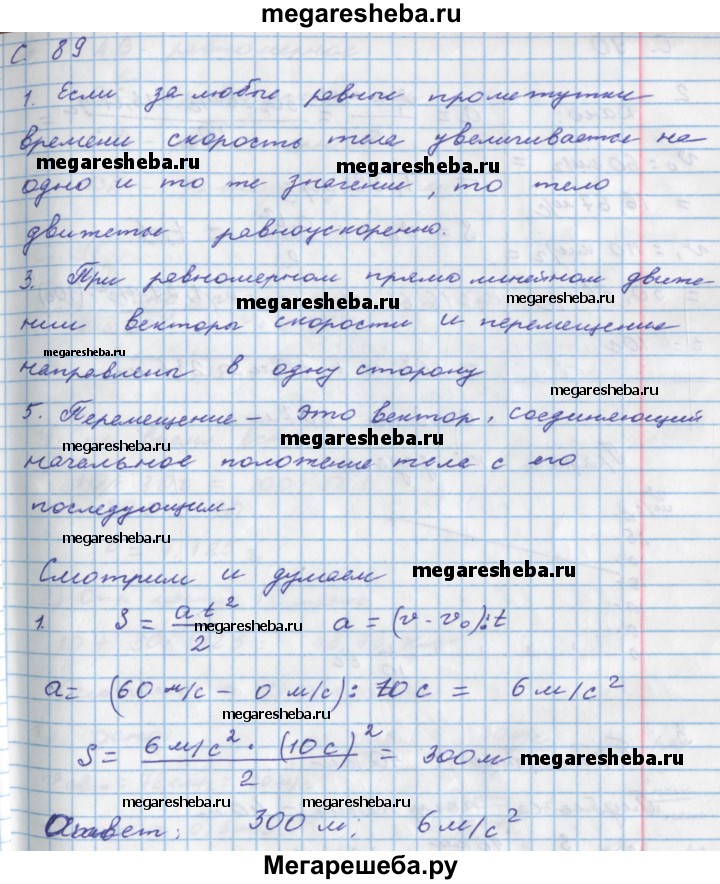 megaresheba.ru
С. 89
1. Если за любые равные промежутки
времени скорость тела увеличивается на
megaresheba.ru megaresheba.ru
одно и то же значение, то тело
движется равноускоренно.
3. При равномерном прямолинейном движе-
megaresheba.ru
нии векторы скорости и перемещение
megaresheba.ru
направлены в одну сторону
megaresheba.ru
5. Перемещение – это вектор, соединяющий
megaresheba.ru megaresheba.ru
начальное положение тела с его
последующим
megaresheba.ru
Смотрим и думаем megaresheba.ru
1. S = at²/2 a = (v - v₀):t
megaresheba.ru
a = (60 м/с – 0 м/с) : 10 с = 6 м/с²
megaresheba.ru
S = 6 м/с² · (10 с)²/2 = 300 м
megaresheba.ru
megaresheba.ru megaresheba.ru
Ответ: 300 м; 6 м/с²
Мегарешеба.ру